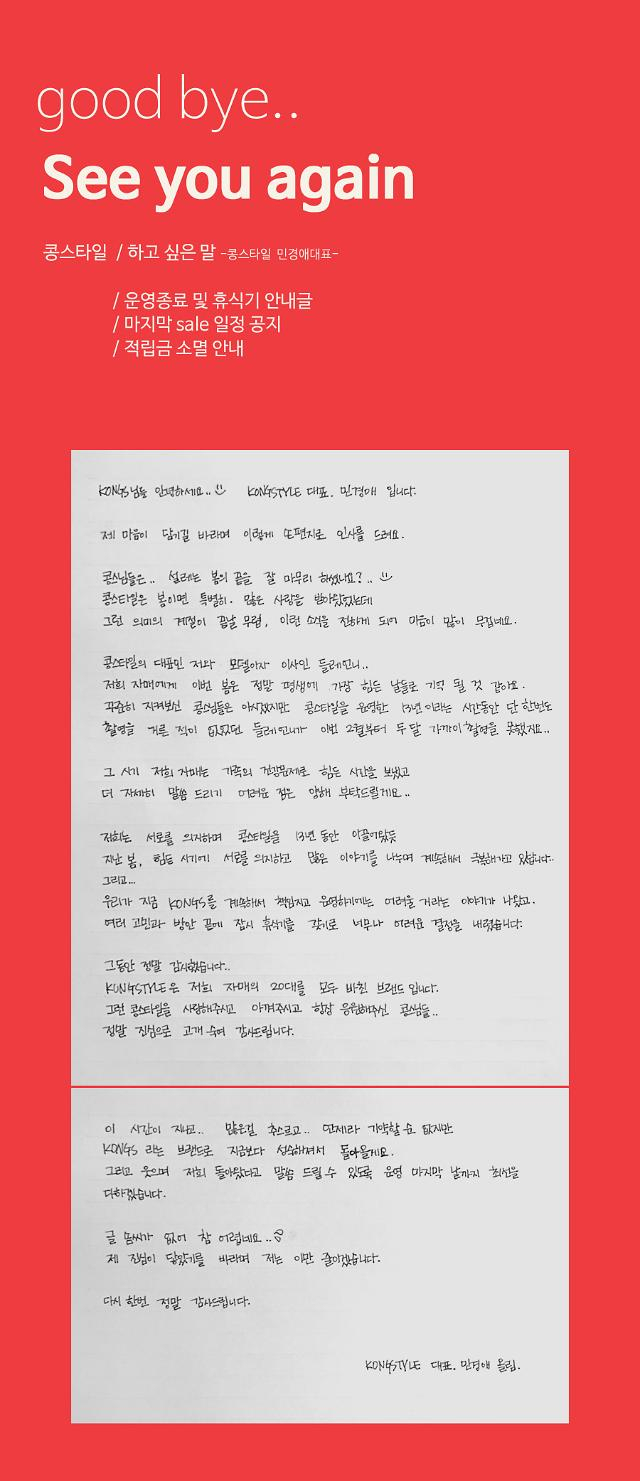 good bye..
See you again
콩스타일 / 하고 싶은 말 -콩스타일 민경애대표-
/ 운영종료 및 휴식기 안내글
/ 마지막 sale 일정 공지
/ 적립금 소멸 안내
KONGS님들 안녕하세요.. KONGSTYLE 대표. 민경애 입니다.
제 마음이 담기길 바라며 이렇게 손편지로 인사를 드려요.
콩스님들은.. 설레는 봄의 끝을 잘 마무리 하셨나요?..
콩스타일은 봄이면 특별히. 많은 사랑을 받아왔었는데
그런 의미의 계절이 끝날 무렵, 이런 소식을 전하게 되어 마음이 많이 무겁네요.
콩스타일의 대표인 저와 모델이자 이사인 들레언니..
저희 자매에게 이번 봄은 정말 평생에 가장 힘든 날들로 기억 될 것 같아요.
꾸준히 지켜보신 콩스님들은 아시겠지만 콩스타일을 운영한 13년이라는 시간동안 단 한번도
촬영을 거른 적이 없었던 들레언니가 이번 2월부터 두달 가까이 촬영을 못했지요..
그 시기 저희 자매는 가족의 건강문제로 힘든 시간을 보냈고
더 자세히 말씀 드리기 어려운 점은 양해 부탁드릴게요..
저희는 서로를 의지하며 콩스타일을 13년 동안 이끌어왔듯
지난 봄, 힘든 시기에 서로를 의지하고 많은 이야기를 나누며 계속해서 극복해가고 있답니다..
그리고...
우리가 지금 KONGS를 계속해서 책임지고 운영하기에는 어려울 거라는 이야기가 나왔고.
여러 고민과 방안 끝에 잠시 휴식기를 갖기로 너무나 어려운 결정을 내렸습니다.
그동안 정말 감사했습니다..
KONGSTYLE은 저희 자매의 20대를 모두 바친 브랜드 입니다.
그런 콩스타일을 사랑해주시고 아껴주시고 항상 응원해주신 콩스님들..
정말 진심으로 고개 숙여 감사드립니다.
이 시간이 지나고.. 많은걸 추스르고.. 언제라 기약할 순 없지만
KONGS 라는 브랜드로 지금보다 성숙해져서 돌아올게요.
그리고 웃으며 저희 돌아왔다고 말씀 드릴 수 있도록 운영 마지막 날까지 최선을
다하겠습니다.
글 솜씨가 없어 참 어렵네요..
제 진심이 닿았기를 바라며 저는 이만 줄이겠습니다.
다시 한번 정말 감사드립니다.
KONGSTYLE 대표. 민경애 올림.